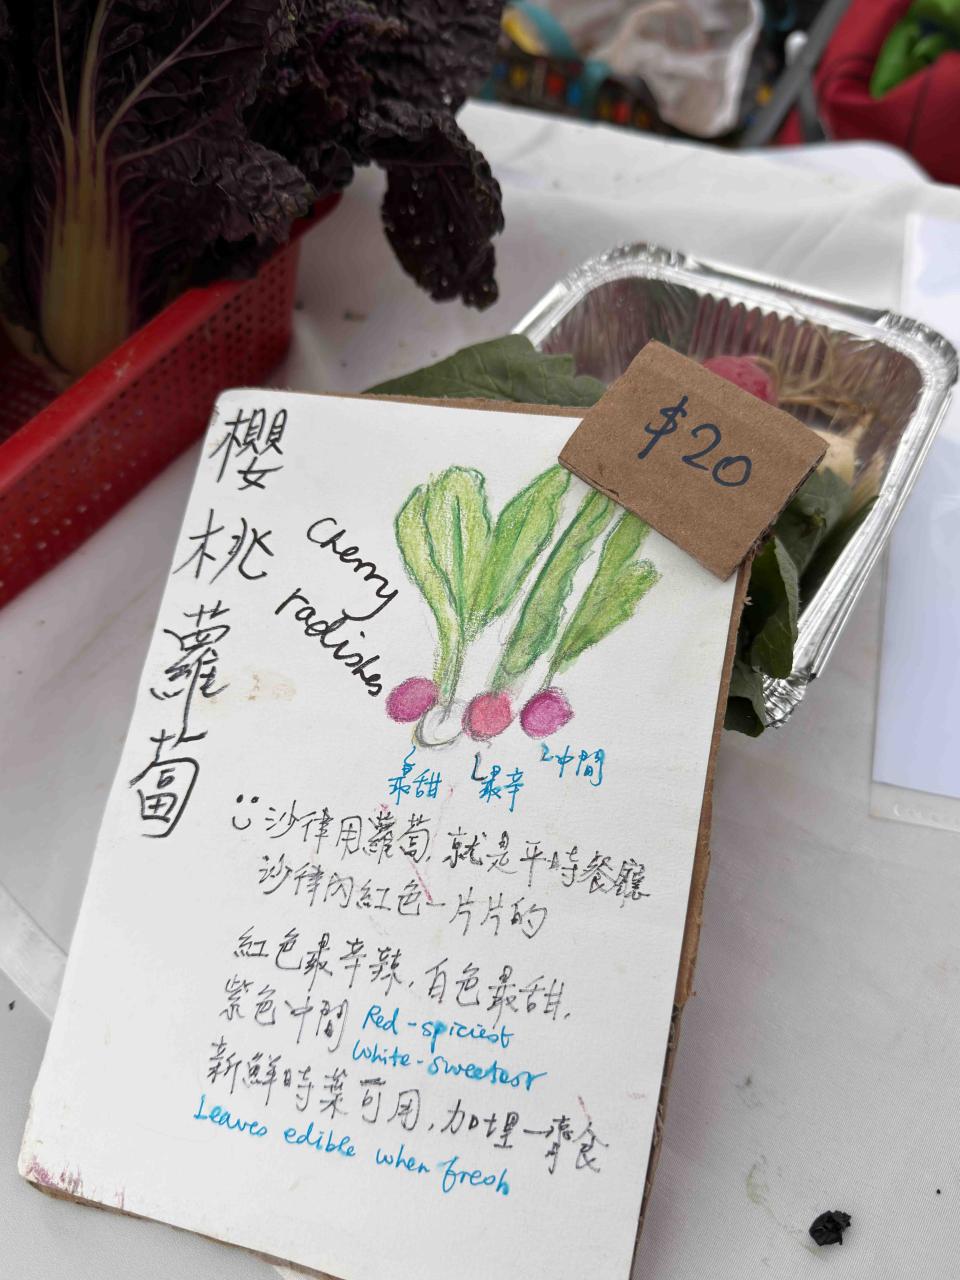 櫻桃蘿蔔
Cherry
radishes
$20
最甜
最辛
中間
沙律用蘿蔔, 就是平時餐廳
沙律內紅色一片片的
紅色最辛辣, 白色最甜,
紫色中間 Red-spiciest
White-sweetest
新鮮時葉可用, 加埋一齊食
Leaves edible when fresh